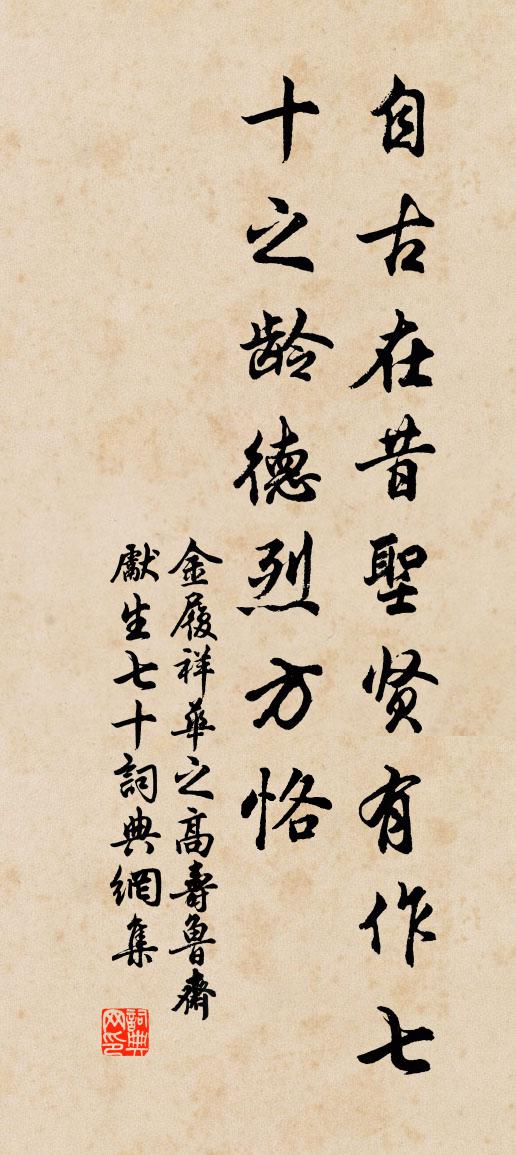 自古在昔聖贤有作七
十之龄德烈方恪
金履祥華之高壽魯齋
獻生七十詞典網集
詞典網印